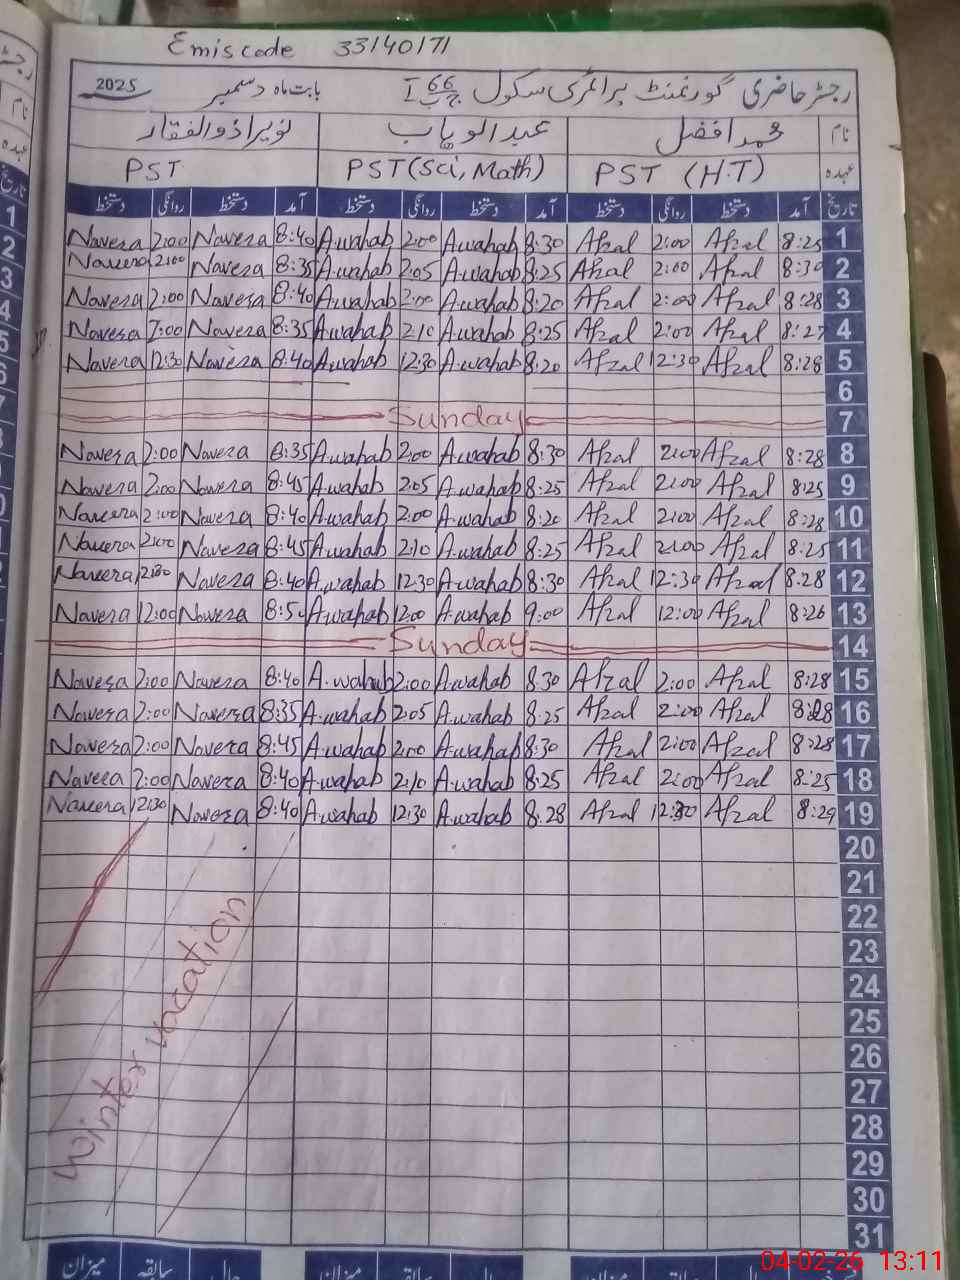 Emis code 33140171
رجسٹر حاضری گورنمنٹ پرائمری سکول 66 ج ب I بابت ماہ دسمبر 2025
نام محمد افضل عبد الوہاب نویرا ذوالفقار
عہدہ PST (H.T) PST (Sci, Math) PST
تاریخ آمد دستخط روانگی دستخط آمد دستخط روانگی دستخط آمد دستخط روانگی دستخط
Navera 2:00 Navera 8:40 A.wahab 2:00 A.wahab 8:30 Afzal 2:00 Afzal 8:25 1
Naveera 2:00 Navera 8:35 A.wahab 2:05 A.wahab 8:25 Afzal 2:00 Afzal 8:30 2
Navera 2:00 Navera 8:40 A.wahab 2:00 A.wahab 8:20 Afzal 2:00 Afzal 8:28 3
Navera 2:00 Navera 8:35 A.wahab 2:10 A.wahab 8:25 Afzal 2:00 Afzal 8:27 4
Navera 12:30 Navera 8:40 A.wahab 12:30 A.wahab 8:20 Afzal 12:30 Afzal 8:28 5
6
Sunday 7
Navera 2:00 Navera 8:35 A.wahab 2:00 A.wahab 8:30 Afzal 2:00 Afzal 8:28 8
Navera 2:00 Navera 8:45 A.wahab 2:05 A.wahab 8:25 Afzal 2:00 Afzal 8:25 9
Naveera 2:00 Navera 8:40 A.wahab 2:00 A.wahab 8:20 Afzal 2:00 Afzal 8:28 10
Naveera 2:00 Navera 8:45 A.wahab 2:10 A.wahab 8:25 Afzal 2:00 Afzal 8:25 11
Naveera 12:30 Navera 8:40 A.wahab 12:30 A.wahab 8:30 Afzal 12:30 Afzal 8.28 12
Navera 12:00 Navera 8:50 A.wahab 12:00 A.wahab 9:00 Afzal 12:00 Afzal 8:26 13
Sunday 14
Navera 2:00 Navera 8:40 A.wahab 2:00 A.wahab 8.30 Afzal 2:00 Afzal 8:28 15
Navera 2:00 Navera 8:35 A.wahab 2:05 A.wahab 8.25 Afzal 2:00 Afzal 8:28 16
Navera 2:00 Navera 8:45 A.wahab 2:00 A.wahab 8:30 Afzal 2:00 Afzal 8:28 17
Navera 2:00 Navera 8:40 A.wahab 2:10 A.wahab 8:25 Afzal 2:00 Afzal 8:25 18
Naveera 12:30 Navera 8:40 A.wahab 12:30 A.wahab 8.28 Afzal 12:30 Afzal 8:29 19
20
21
22
23
24
25
26
27
28
29
30
31
Winter vacation
میزان سابقہ حال میزان سابقہ حال
04-02-26 13:11